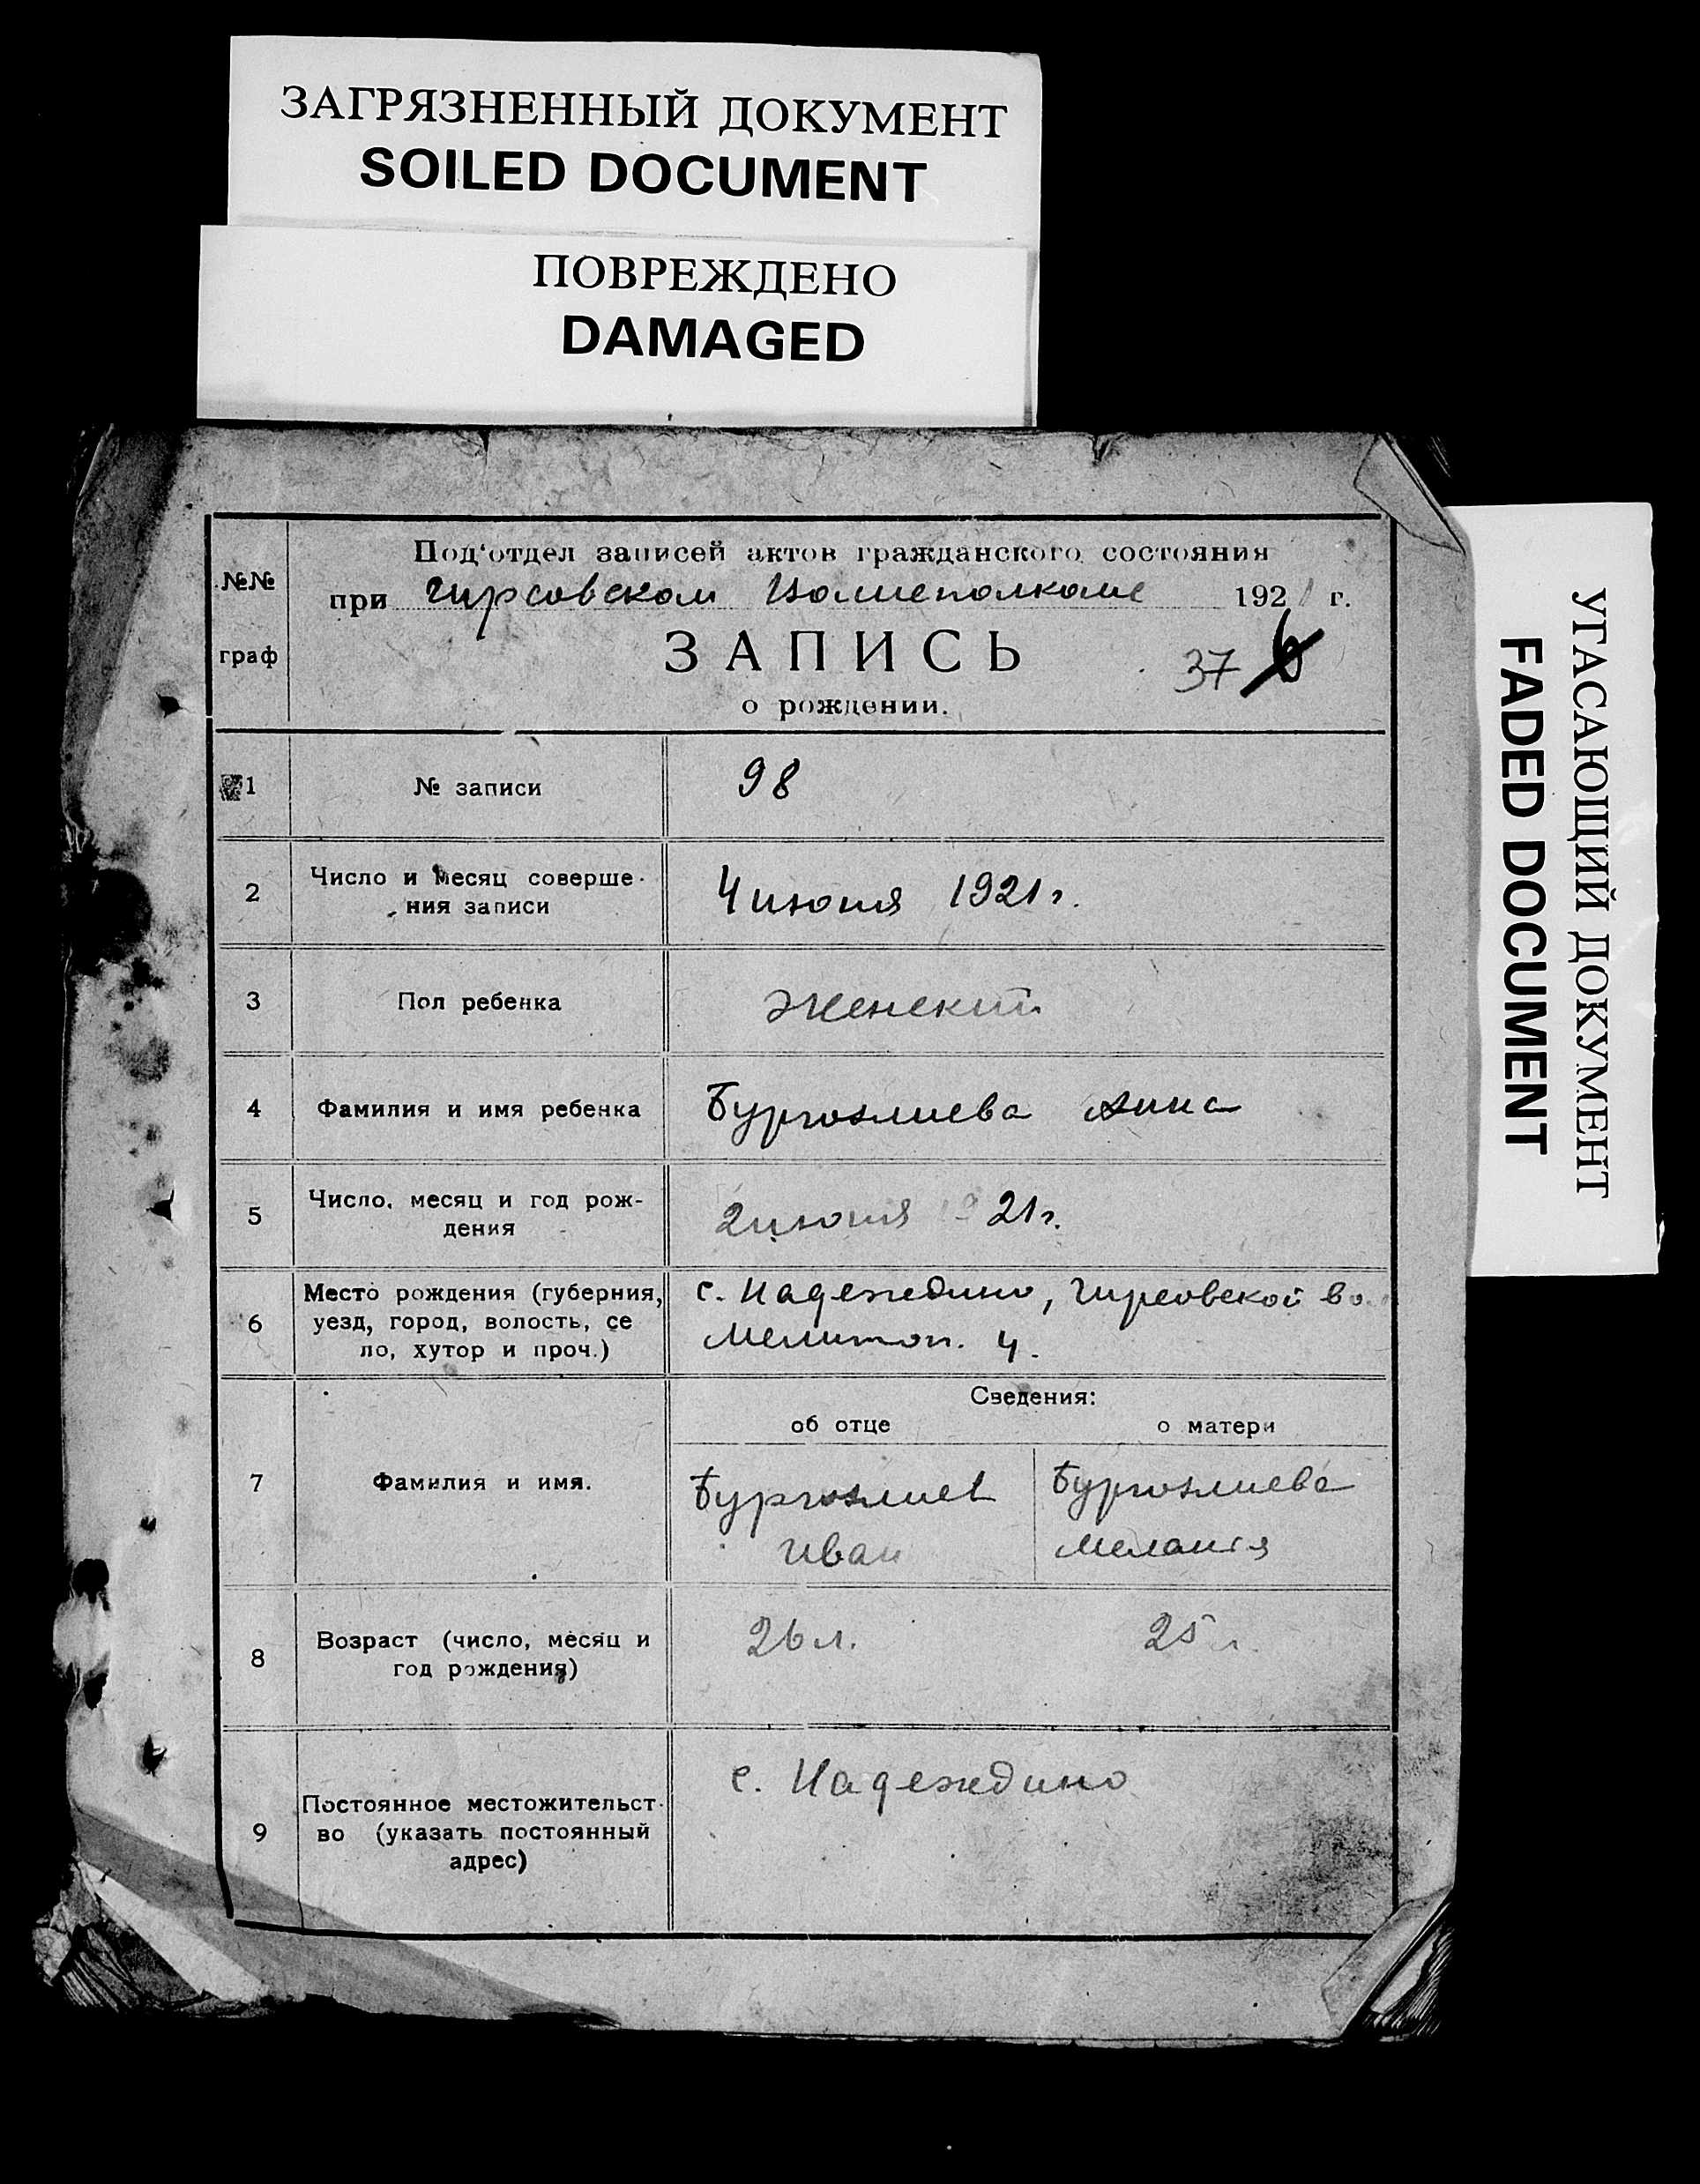 ЗАГРЯЗНЕННЫЙ ДОКУМЕНТ
SOILED DOCUMENT
ПОВРЕЖДЕНО
DAMAGED
УГАСАЮЩИЙ ДОКУМЕНТ
FADED DOCUMENT
№№ граф
Под'отдел записей актов гражданского состояния
при Гирсовском Волисполкоме 1921 г.
ЗАПИСЬ
37
о рождении.
1 № записи 98
2 Число и месяц соверше-
ния записи 4 июня 1921 г.
3 Пол ребенка Женский
4 Фамилия и имя ребенка Бургозлиева Анна
5 Число, месяц и год рож-
дения 2 июня 1921 г.
6 Место рождения (губерния,
уезд, город, волость, се
ло, хутор и проч.)
с. Надеждино, Гирсовской во
Мелитоп. у.
Сведения:
об отце о матери
7 Фамилия и имя.
Бургозлиев Бургозлиева
Иван Мелания
8 Возраст (число, месяц и
год рождения)
26 л. 25 л.
9 Постоянное местожительст-
во (указать постоянный
адрес)
с. Надеждино